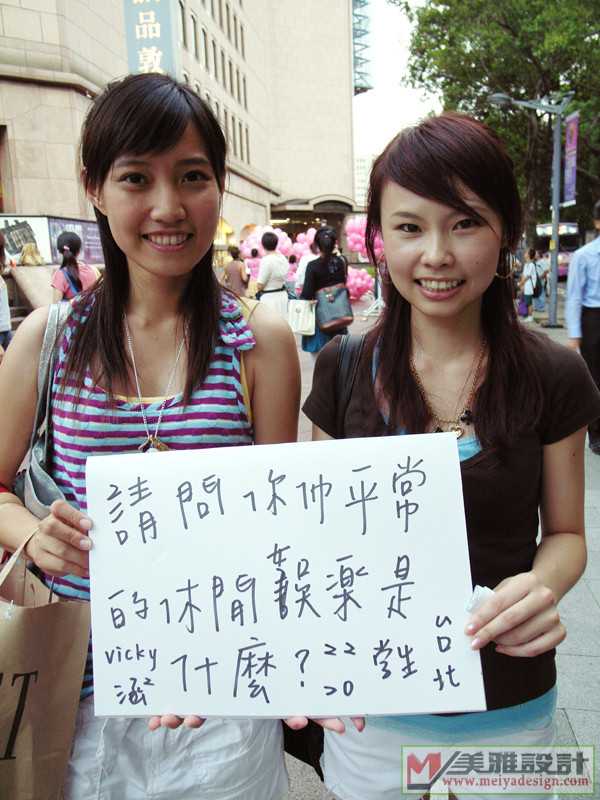 品敦
請問你们平常
的休閒娛楽是
什麼?
vicky 22
涵² 20
学生
台北
美雅設計
www.meiyadesign.com